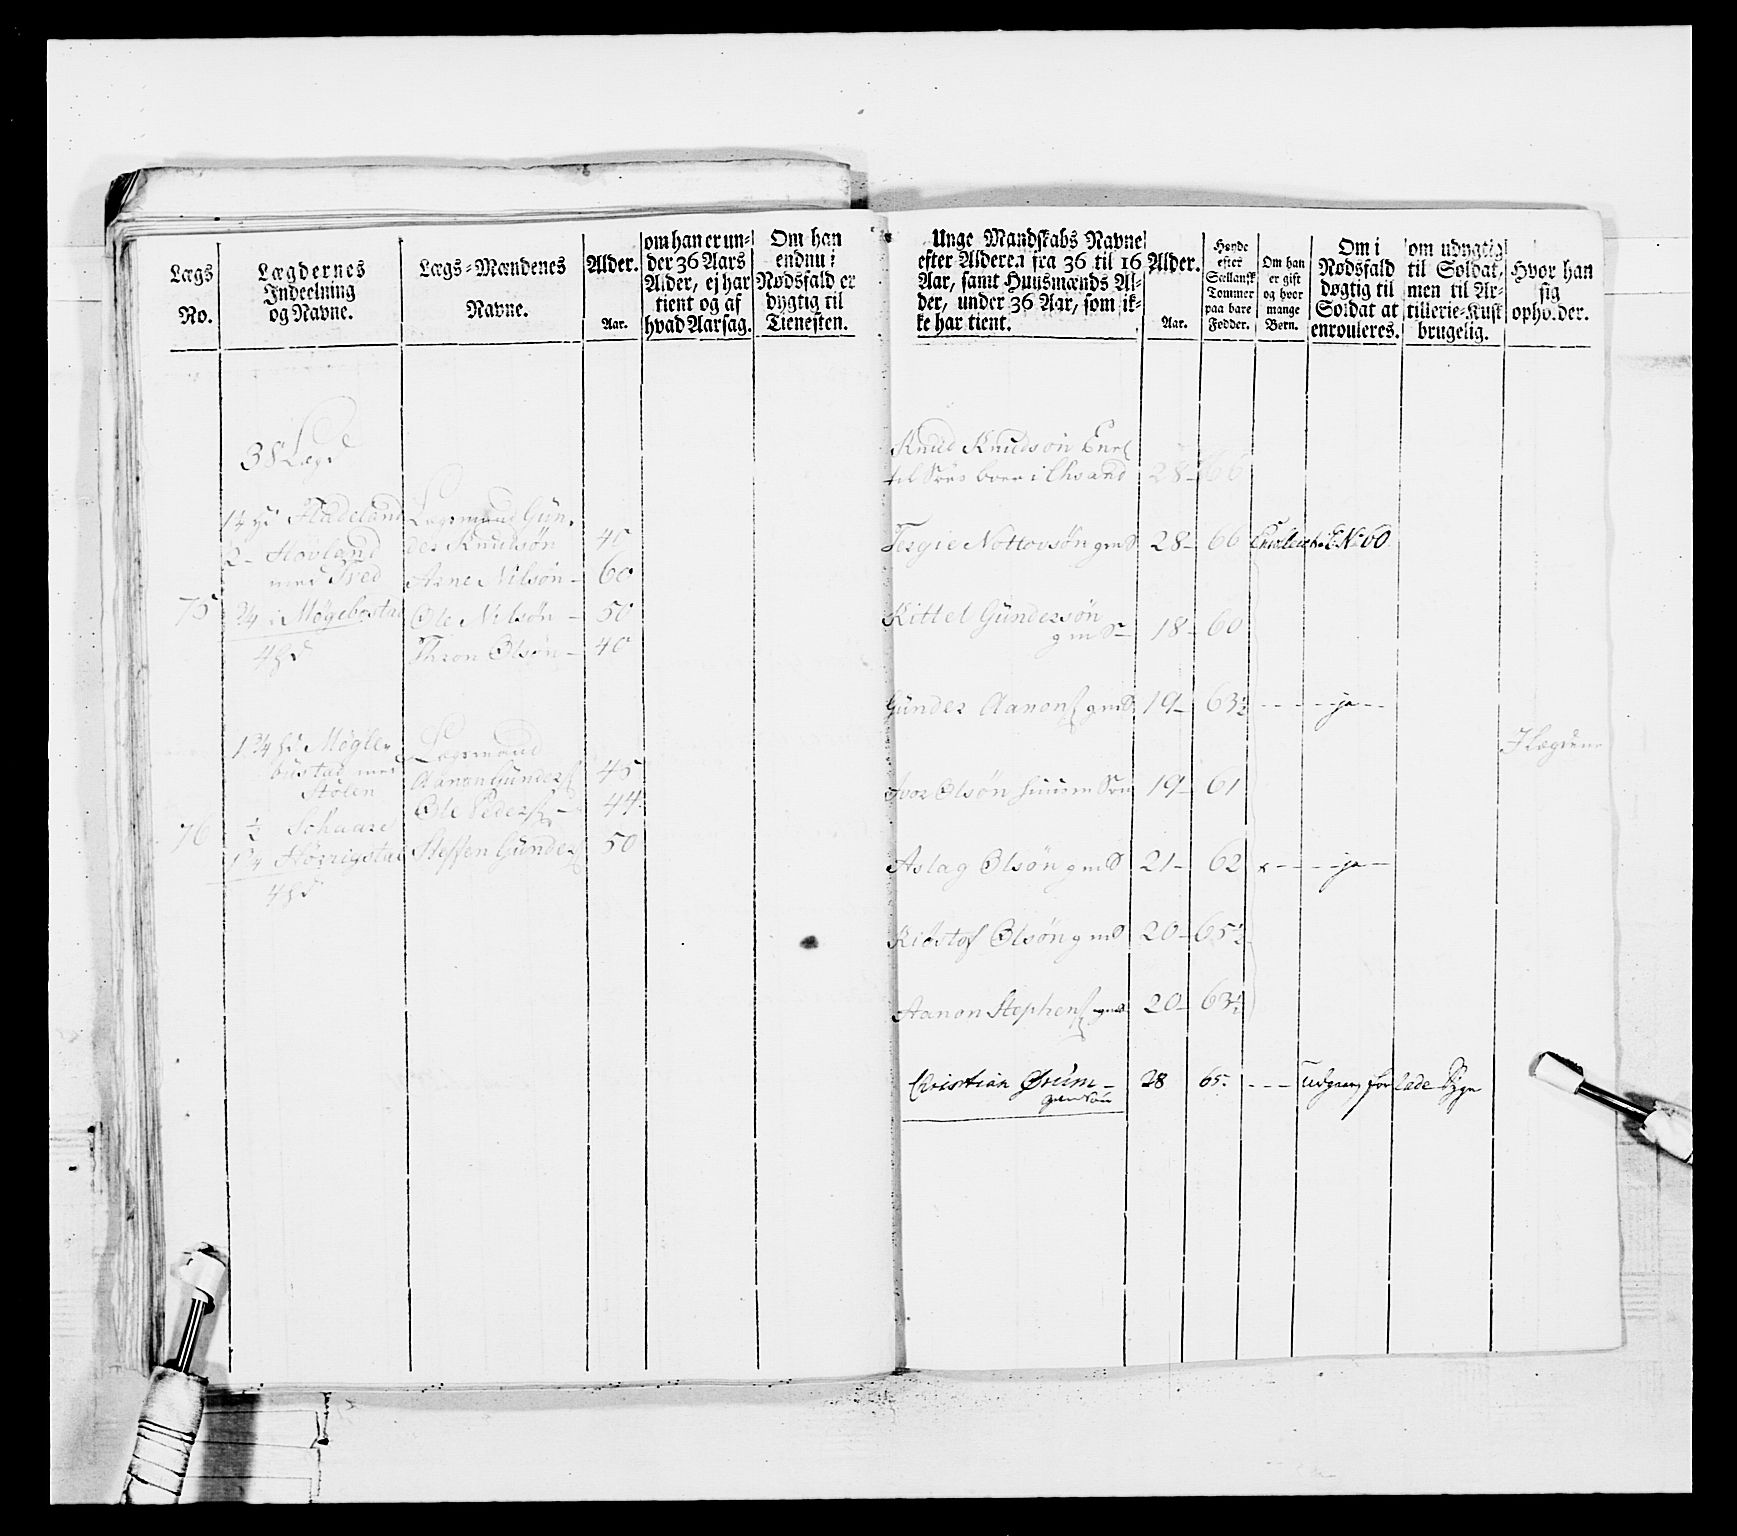 Lægs
No.
Lægdernes
Indeelning
og Navne.
Lægs-Mændenes
Navne.
Alder.
Aar.
om han er un-
der 36 Aars
Alder, ej har
tient og af
hvad Aarsag.
Om han
endnu i
Nødsfald er
dygtig til
Tienesten.
38 Lægd
1¼ hd Fladeland
Lægsmand Gün-
der Knudsön
45
2- Hovland
med Tved
Arne Nilsön -
60
75
¾ i
Ole Nilsön -
50
4 hd
Thron Olsön -
40
1¾ hd Møgle-
bustad med
Stölen
Lægsmand
Aanon Günders
45
Ole Peders -
44
76
½ Schaare
Steffen Günders
50
1¾
4 hd
Unge Mandskabs Navne
efter Alderen fra 36 til 16
Aar, samt Huusmænds Al-
der, under 36 Aar, som ik-
ke har tient.
Alder.
Aar.
Høyde
efter
Sællansk
Tommer
paa bare
Fødder.
Om han
er gift
og hvor
mange
Børn.
Om i
Nødsfald
døgtig til
Soldat at
enrouleres.
om udygtig
til Soldat,
men til Ar-
tillerie-Kusk
brugelig.
Hvor han
sig
opholder.
Knud Knudsön
til Söes boer i Chsand
28- 66
Tergie Nottovsön gmS
28- 66
No 60
Kittel Gündersön
gm S-
18- 60
Günder Aanons gmS
19- 63½ - - - - ja - -
I Lægdene
Ivor Olsön huusm Sön
19- 61
Aslag Olsön gmS
21- 62 x - - - ja - -
Kiöstof Olsön gmS
20- 65½
Aanon Stephens gmS
20- 63½
Christian Örüm -
gm Sön
28 65. - - -